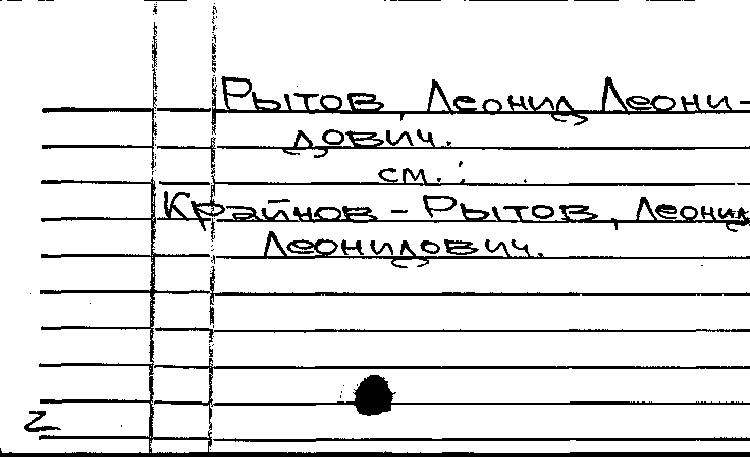 Рытов, Леонид Леони-
дович.
см.:
Крайнов - Рытов, Леонид
Леонидович.
2